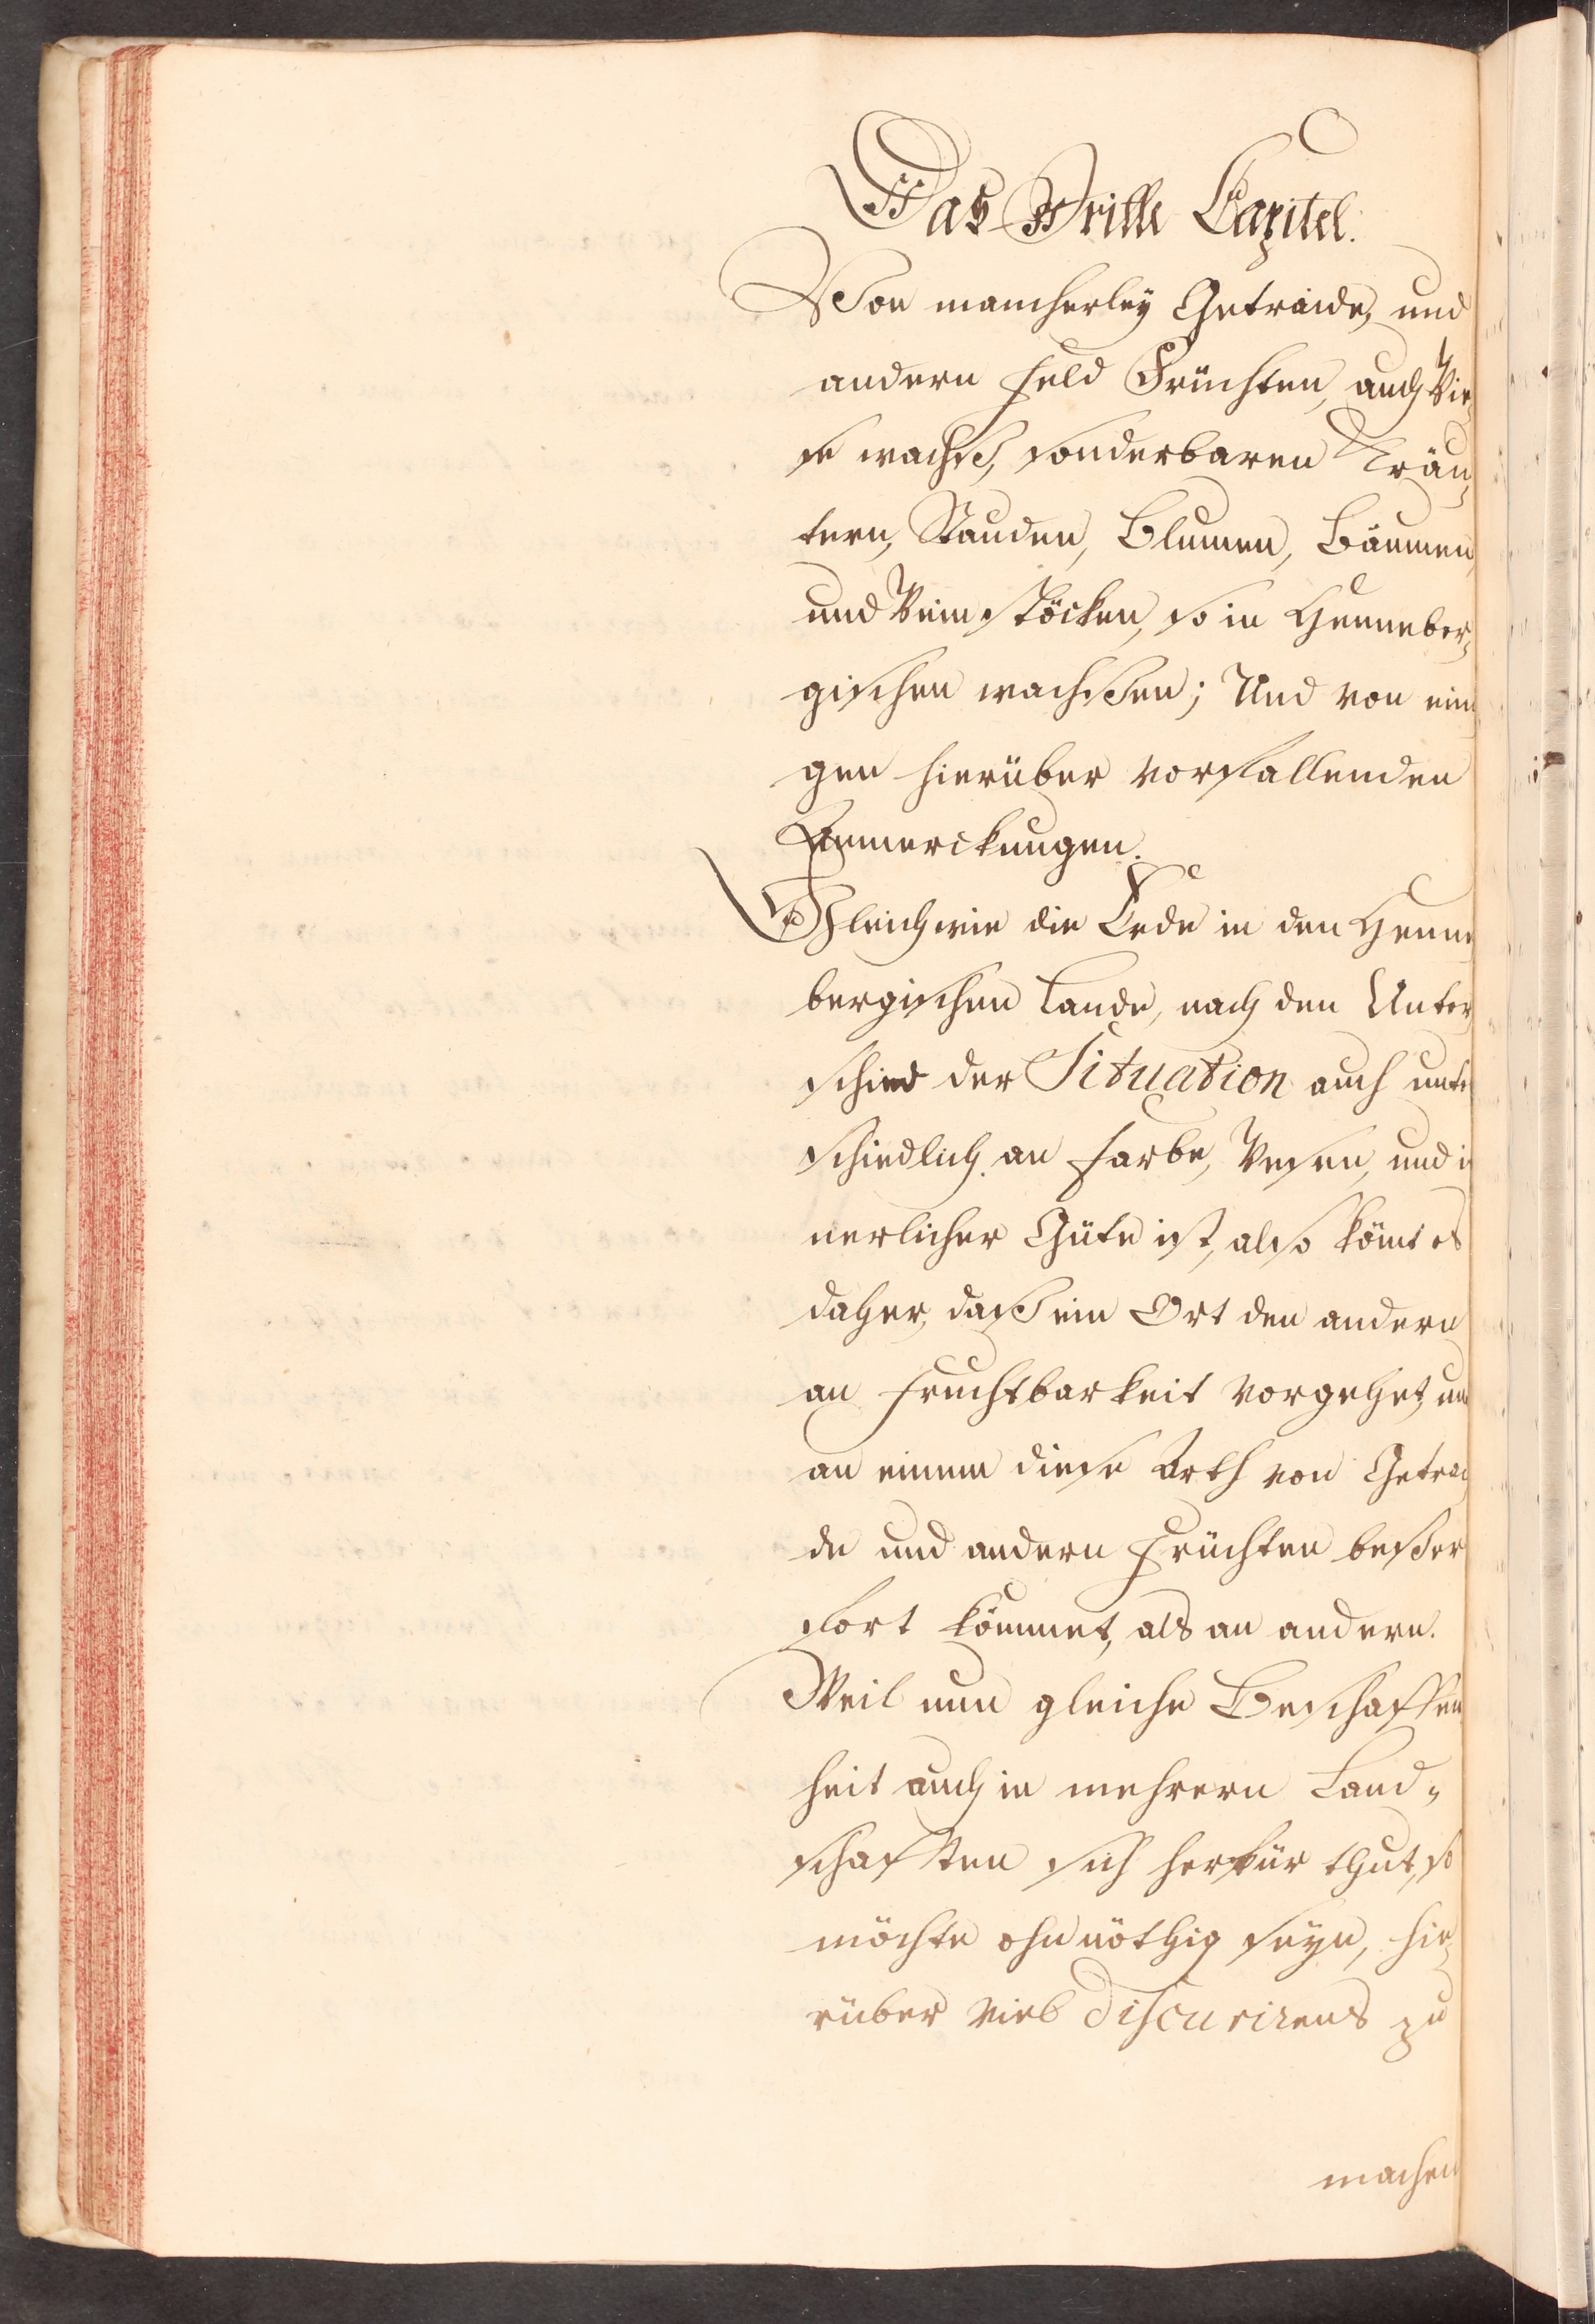 Das Dritte Capitel.
Von mancherley Getraide, und
andern Feld Früchten, auch Wie-
se wachs, sonderbaren Kräu-
tern, Stauden, Blumen, Bäumen,
und Weinstöcken, so in Henneber-
gischen wachsßen; Und von eini
gen hierüber vorfallenden
Anmerckungen.
Gleichwie die Erde in den Henne
bergischen Lande, nach den Unter
schied der Situation auch unter
schiedlich an Farbe, Wesen, und i
nerlicher Güte ist, also kömt es
daher, daß ein Ort den andern
an Fruchtbarkeit vorgehet, un
an einem diese Arth von Getrai
de und andern Früchten beßer
fort kömmet, als an andern.
Weil nun gleiche Beschaffen
heit auch in mehrern Land-
schafften sich herfür thut, so
möchte ohnnöthig seyn, hie-
rüber viel discurirens zu
machen